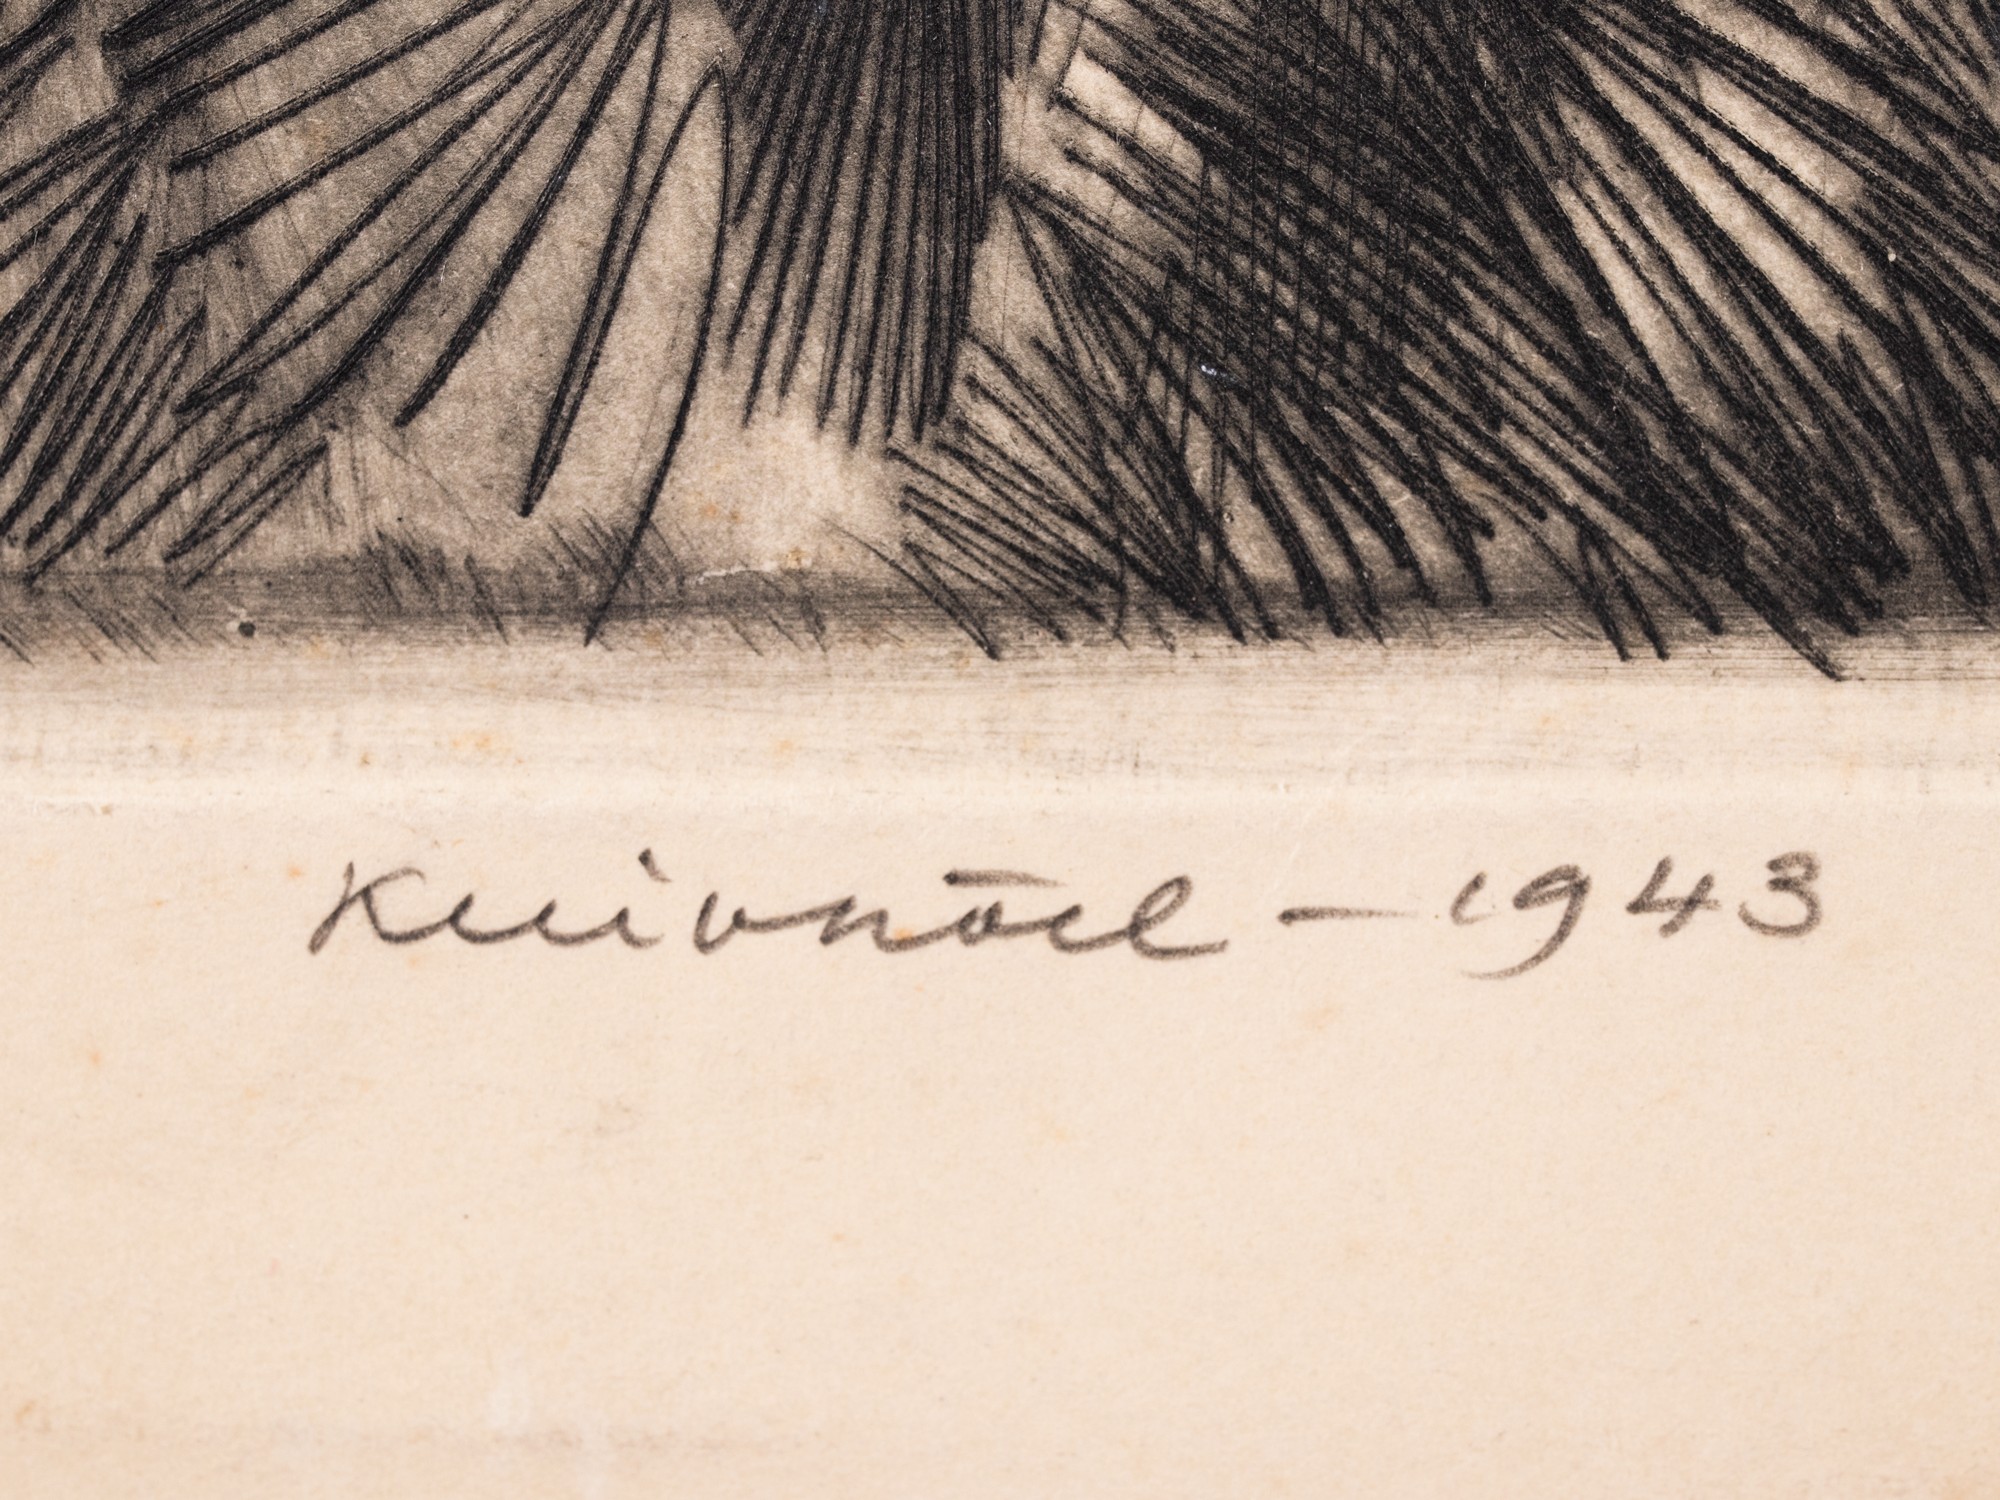 Kuivnõel – 1943